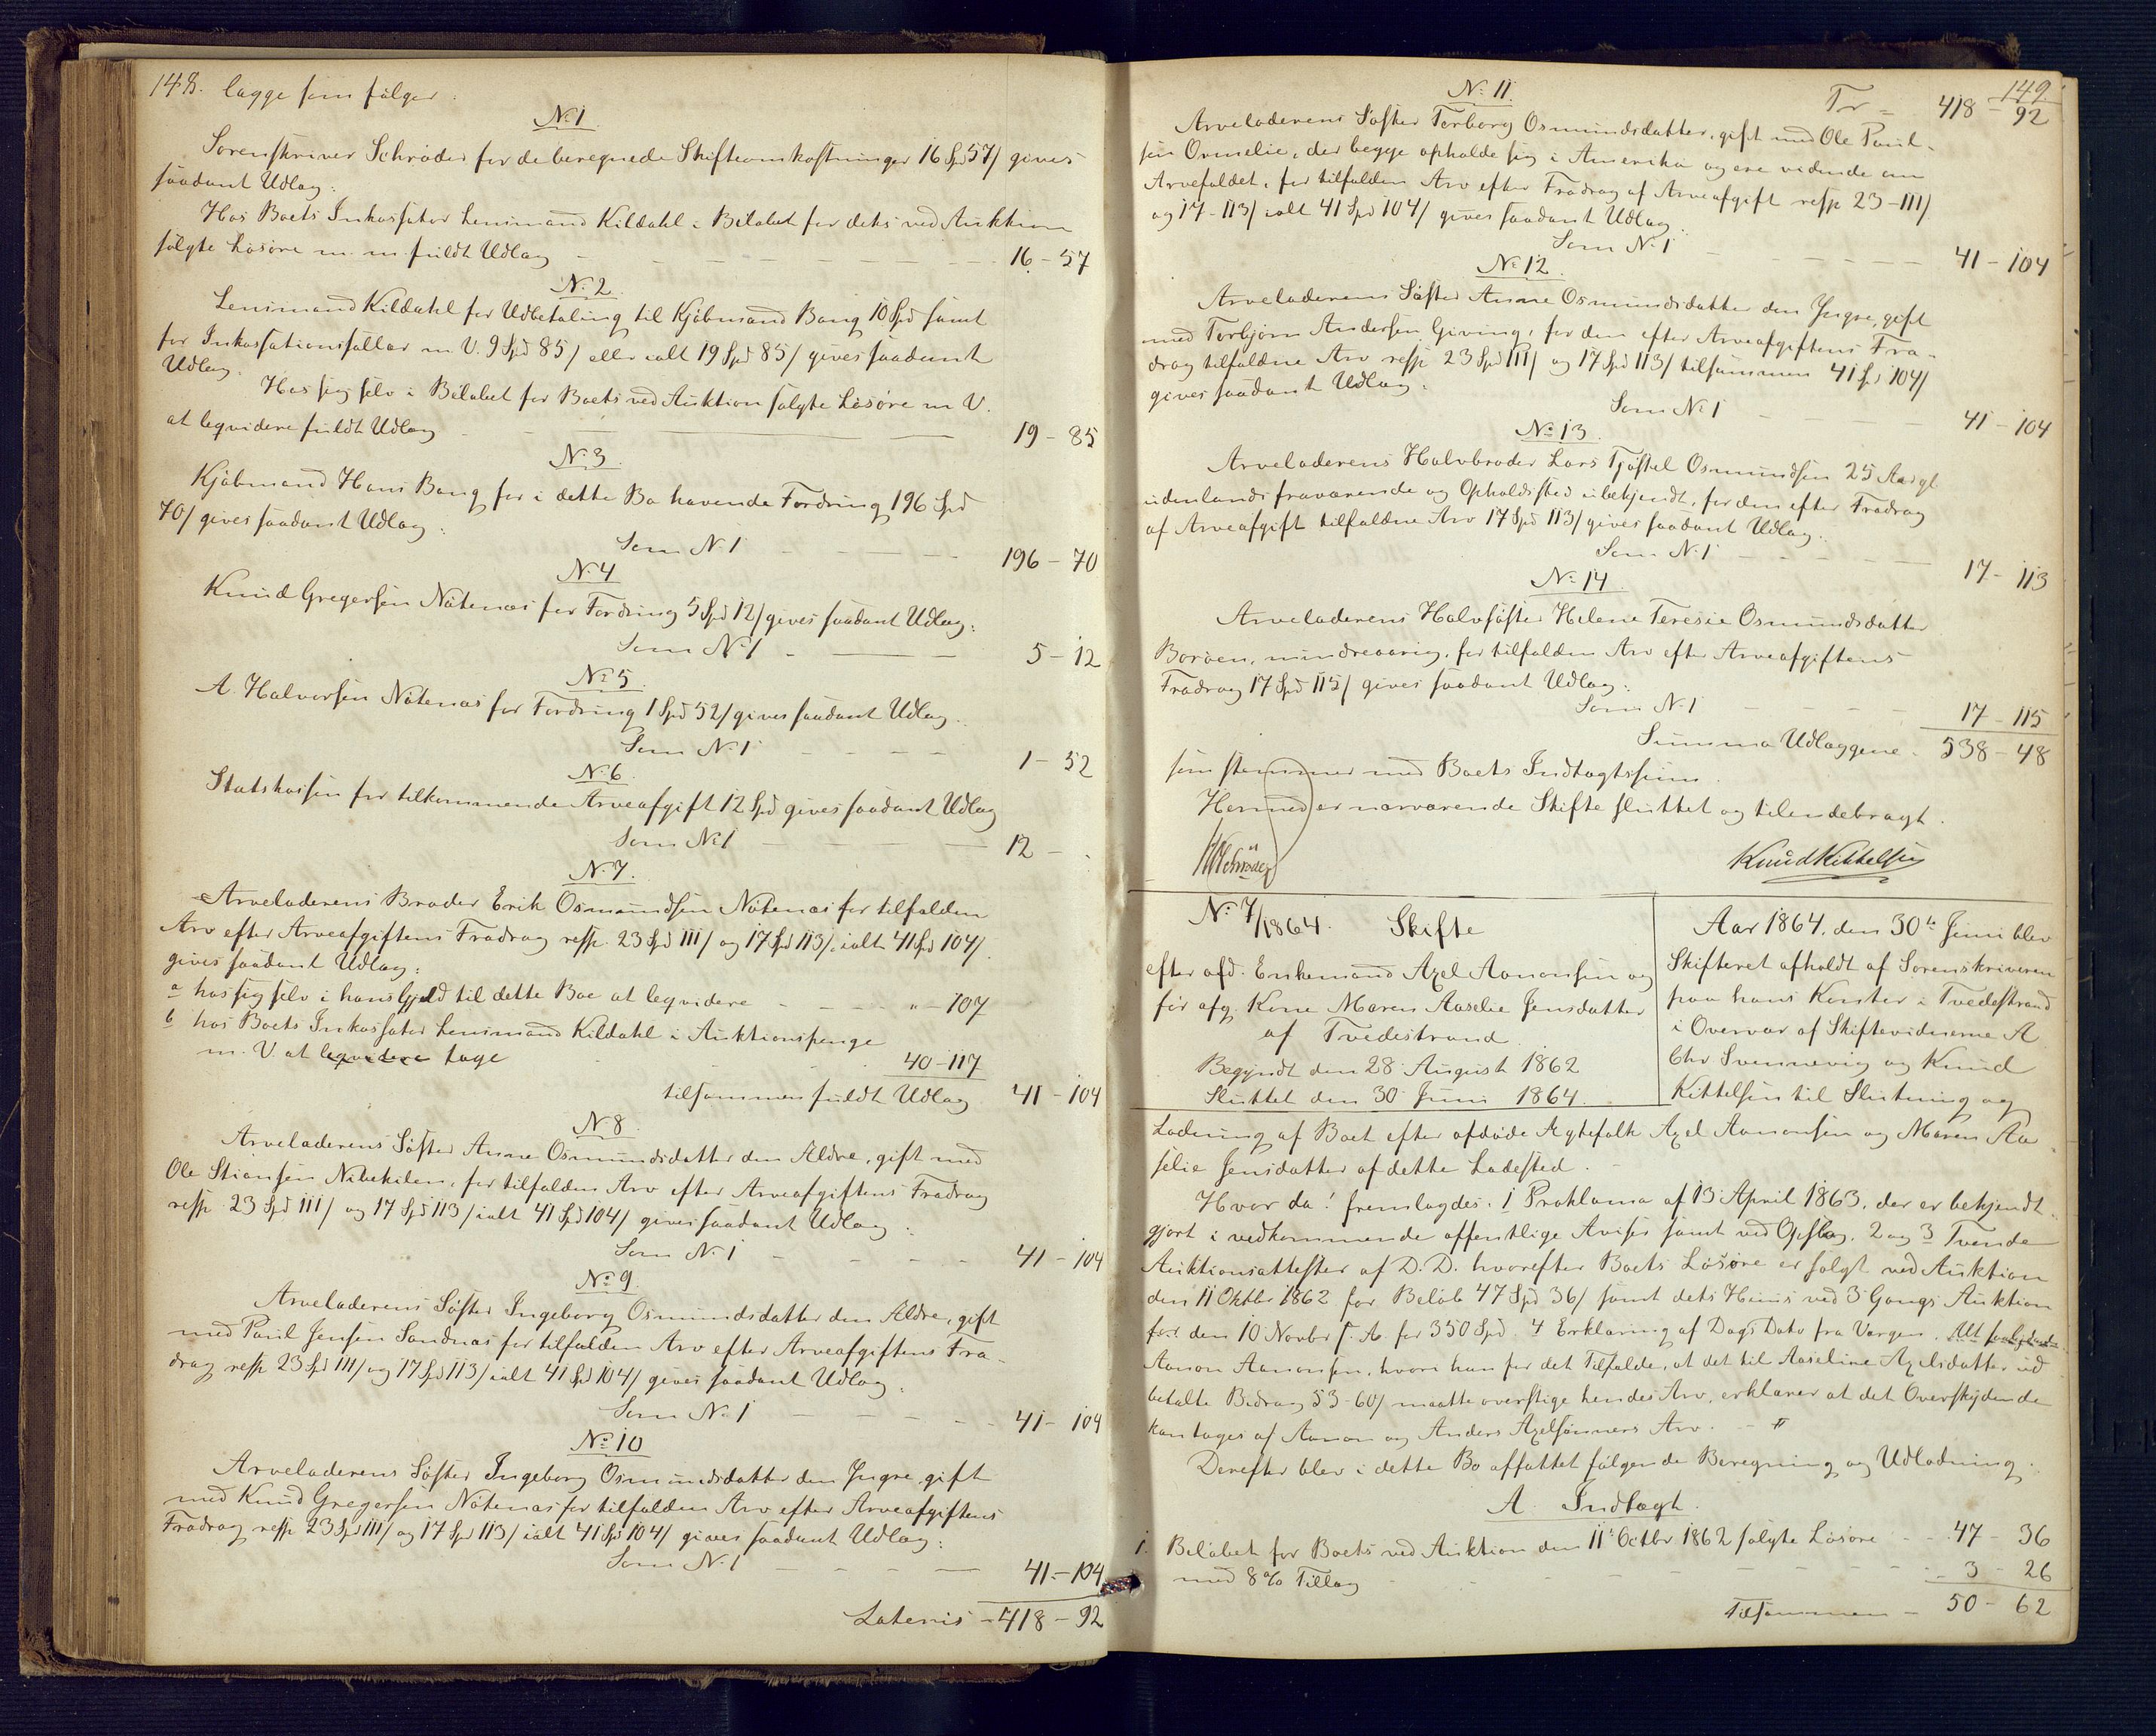 148. lægge som følger:
No 1.
Sorenskriver Schrøder for de beregnede Skifteomkostninger 16 Spd 57/ gives
saadant Udlæg:
Hos Boets Inkassator Lensmand Kildahl i Beløbet for dets ved Auktion
solgte Løsøre m. m. fuldt Udlæg - 16 - 57
No 2.
Lensmand Kildahl for Udbetaling til Kjøbmand Bang 10 Spd samt
for Inkassationssallær m. V. 9 Spd 85/ eller ialt 19 Spd 85/ gives saadant
Udlæg:
Hos sig selv i Beløbet for Boets ved Auktion solgte Løsøre m V.
at leqvidere fuldt Udlæg - 19 - 85
No 3.
Kjøbmand Hans Bang for i dette Bo havende Fordring 196 Spd
70/ gives saadant Udlæg:
Som No 1 - 196 - 70
No 4
Knud Gregersen Nøtenæs for Fordring 5 Spd 12/ gives saadant Udlæg:
Som No 1 - 5 - 12
No 5.
A. Halvorsen Nøtenæs for Fordring 1 Spd 52/ gives saadant Udlæg:
Som No 1 - 1 - 52
No 6.
Statskassen for tilkommende Arveafgift 12 Spd gives saadant Udlæg
Som No 1 - 12 - .
No 7.
Arveladerens Broder Erik Osmundsen Nøtenæs for tilfalden
Arv efter Arveafgiftens Fradrag resp. 23 Spd 111/ og 17 Spd 113/, ialt 41 Spd 104/.
gives saadant Udlæg:
a hos sig selv i hans Gjeld til dette Boe at leqvidere - " - 107
b hos Boets Inkassator Lensmand Kildahl i Auktionspenge
m. V. at leqvidere tage 40 - 117
tilsammen fuldt Udlæg 41 - 104
No 8.
Arveladerens Søster Anne Osmundsdatter den Ældre, gift med
Ole Stiansen Nibekilen, for tilfalden Arv efter Arveafgiftens Fradrag
resp. 23 Spd 111/ og 17 Spd 113/ ialt 41 Spd 104/ gives saadant Udlæg:
Som No 1 - 41 - 104
No 9.
Arveladerens Søster Ingeborg Osmundsdatter den Ældre, gift
med Poul Jensen Sandnæs for tilfalden Arv efter Arveafgiftens Fra-
drag resp 23 Spd 111/ og 17 Spd 113/ ialt 41 Spd 104/ gives saadant Udlæg:
Som No 1 - 41 - 104
No 10
Arveladerens Søster Ingeborg Osmundsdatter den Yngre, gift
med Knud Gregersen Nøtenæs for tilfalden Arv efter Arveafgiftens
Fradrag resp 23 Spd 111/ og 17 Spd 113/ ialt 41 Spd 104/ gives saadant Udlæg:
Som No 1 - 41 - 104
Lateris - 418 - 92
149.
No 11. Tr = 418 - 92
Arveladerens Søster Torborg Osmundsdatter, gift med Ole Poul-
sen Ormelie, der begge opholde sig i Amerika og ere vidende om
Arvefaldet, for tilfalden Arv efter Fradrag af Arveafgift resp 23 - 111/
og 17 - 113/ ialt 41 Spd 104/ gives saadant Udlæg:
Som No 1 - 41 - 104
No 12.
Arveladerens Søster Anne Osmundsdatter den Yngre, gift
med Torbjørn Andersen Giving, for den efter Arveafgiftens Fra-
drag tilfaldne Arv resp 23 Spd 111/ og 17 Spd 113/ tilsammen 41 Spd 104/
gives saadant Udlæg:
Som No 1 - 41 - 104
No 13.
Arveladerens Halvbroder Lars Tjøstel Osmundsen 25 Aar gl.
udenlands fraværende og Opholdssted ubekjendt, for den efter Fradrag
af Arveafgift tilfaldne Arv 17 Spd 113/ gives saadant Udlæg:
Som No 1 - 17 - 113
No 14.
Arveladerens Halvsøster Helene Teresie Osmundsdatter
Borøen, mindreaarig, for tilfalden Arv efter Arveafgiftens
Fradrag 17 Spd 115/ gives saadant Udlæg:
Som No 1 - 17 - 115
Summa Udlæggene - 538 - 48
som stemmer med Boets Indtægtssum.
Hermed er nærværende Skifte sluttet og tilendebragt.
Schrøder Knud Kittelsen
No 7/1864. Skifte
efter afd. Enkemand Axel Aanonsen og
før afg. Kone Maren Aaselie Jensdatter
af Tvedestrand
Begyndt den 28 August 1862
Sluttet den 30 Juni 1864.
Aar 1864, den 30te Juni blev
Skifteret afholdt af Sorenskriveren
paa hans Kontor i Tvedestrand
i Overvær af Skiftevidnerne A
Chr Svennevig og Knud
Kittelsen til Slutning og
Lodning af Boet efter afdøde Ægtefolk Axel Aanonsen og Maren Aa-
selie Jensdatter af dette Ladested.
Hvor da! fremlagdes: 1 Proklama af 13 April 1863, der er bekjendt-
gjort i vedkommende offentlige Aviser samt ved Opslag. 2 og 3 Tvende
Auktionsattester af D. D. hvorefter Boets Løsøre er solgt ved Auktion
den 11 Oktbr 1862 for Beløb 47 Spd 36/ samt dets Huus ved 3 Gangs Auktion
den 10 Novbr s. A. for 350 Spd. 4 Erklæring af Dags Dato fra Værgen. Alt saalydende
Aanon Aanonsen, hvori han for det Tilfælde, at det til Aaseline Axelsdatter ud-
betalte Bidrag 53-60/ maatte overstige hendes Arv, erklærer at det Overskydende
kan tages af Aanon og Anders Axelsønners Arv.
Derefter blev i dette Bo affattet følgende Beregning og Udlodning:
A. Indtægt.
1. Beløbet for Boets ved Auktion den 11 Octbr 1862 solgte Løsøre - 47 - 36
med 8% Tillæg - 3 - 26
Tilsammen - 50 - 62